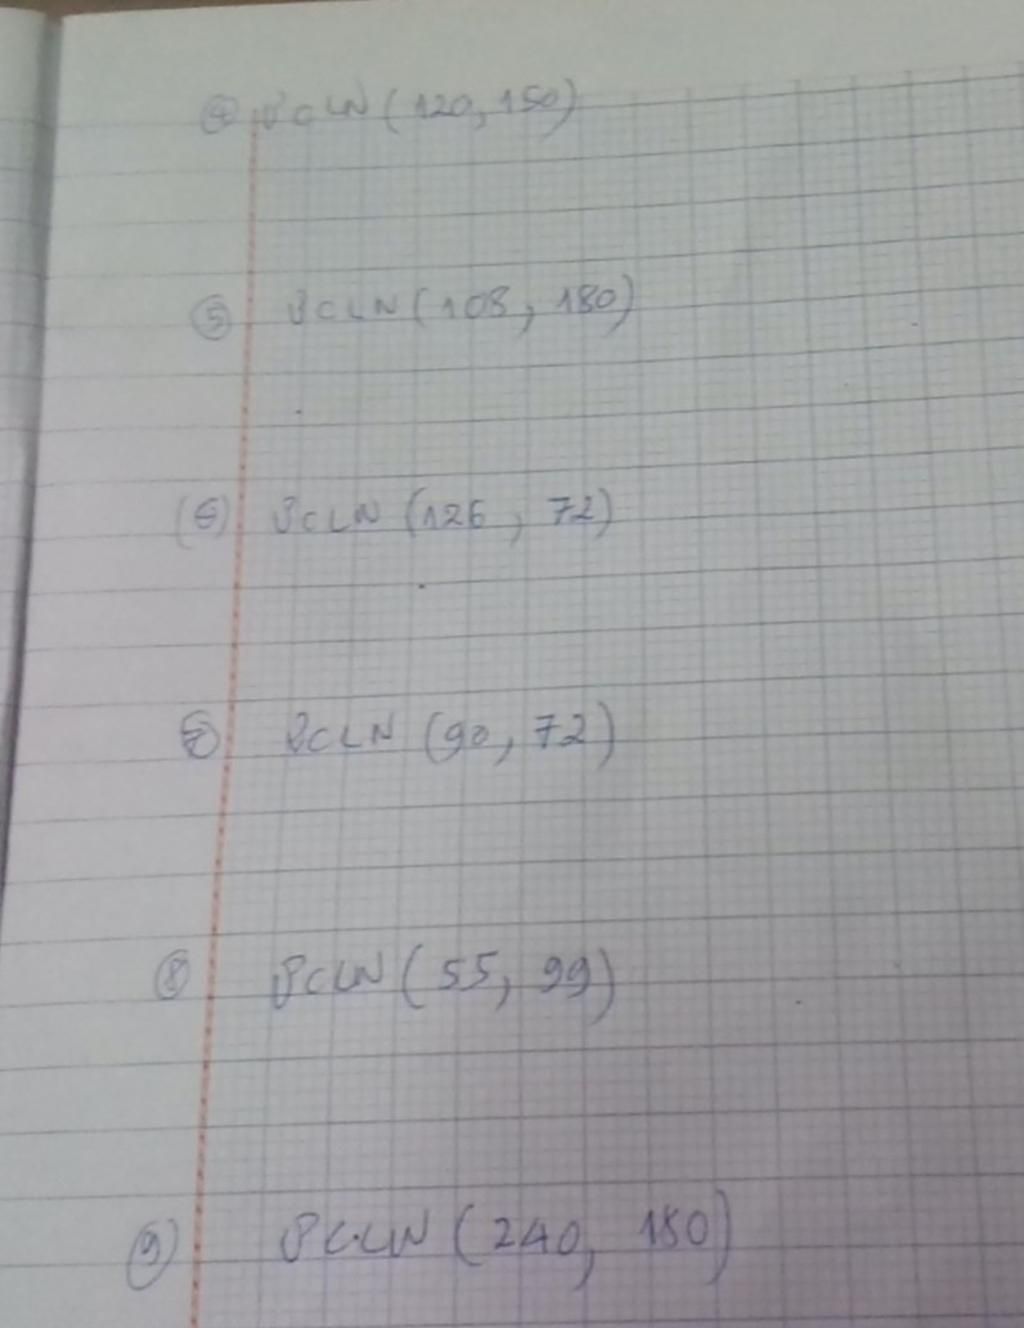 ④ ƯCLN (120, 150)
⑤ ƯCLN (108, 180)
(6) ƯCLN (126, 72)
⑦ ƯCLN (90, 72)
⑧ ƯCLN (55, 99)
⑨ ƯCLN (240, 180)